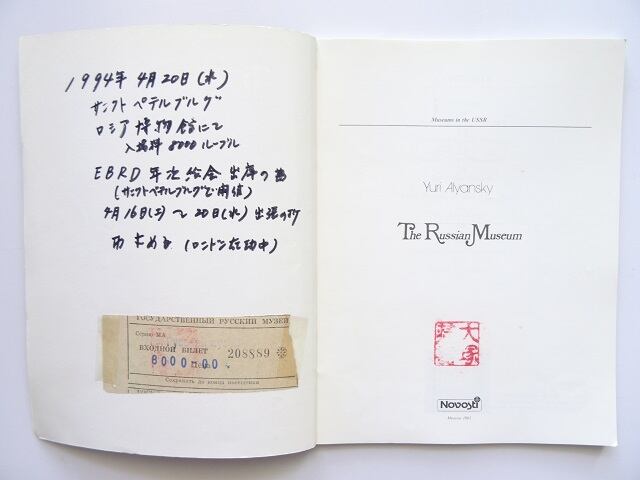 1994年 4月20日(水)
サンクトペテルブルグ
ロシア博物館にて
入場料 8000ルーブル
EBRD 年次総会 出席の為
(サンクトペテルブルグで開催)
4月16日(土)~20日(水) 出張の折
(ロンドン在勤中)
ГОСУДАРСТВЕННЫЙ РУССКИЙ МУЗЕЙ
Серия МА
ВХОДНОЙ БИЛЕТ
208889
8000-00
Цена
Сохранять до конца
Museums in the USSR
Yuri Alyansky
The Russian Museum
大塚
Novosti
Moscow